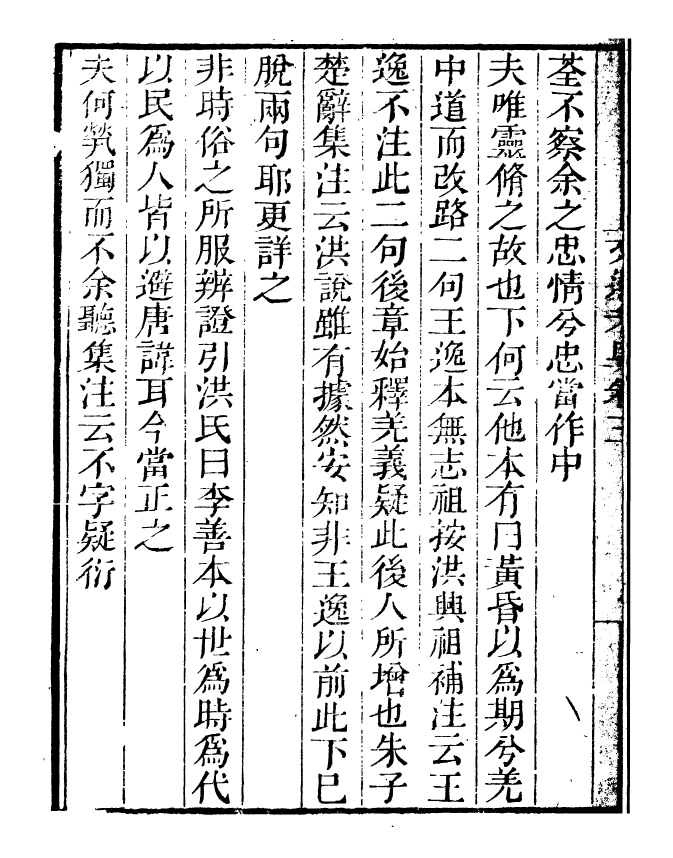 荃不察余之忠情兮忠當作中
夫唯靈脩之故也下何云他本有曰黃昏以爲期兮羌
中道而改路二句王逸本無志祖按洪興祖補注云王
逸不注此二句後章始釋羌義疑此後人所增也朱子
楚辭集注云洪說雖有據然安知非王逸以前此下已
脫兩句耶更詳之
非時俗之所服辨證引洪氏曰李善本以世爲時爲代
以民爲人皆以避唐諱耳今當正之
夫何煢獨而不余聽集注云不字疑衍